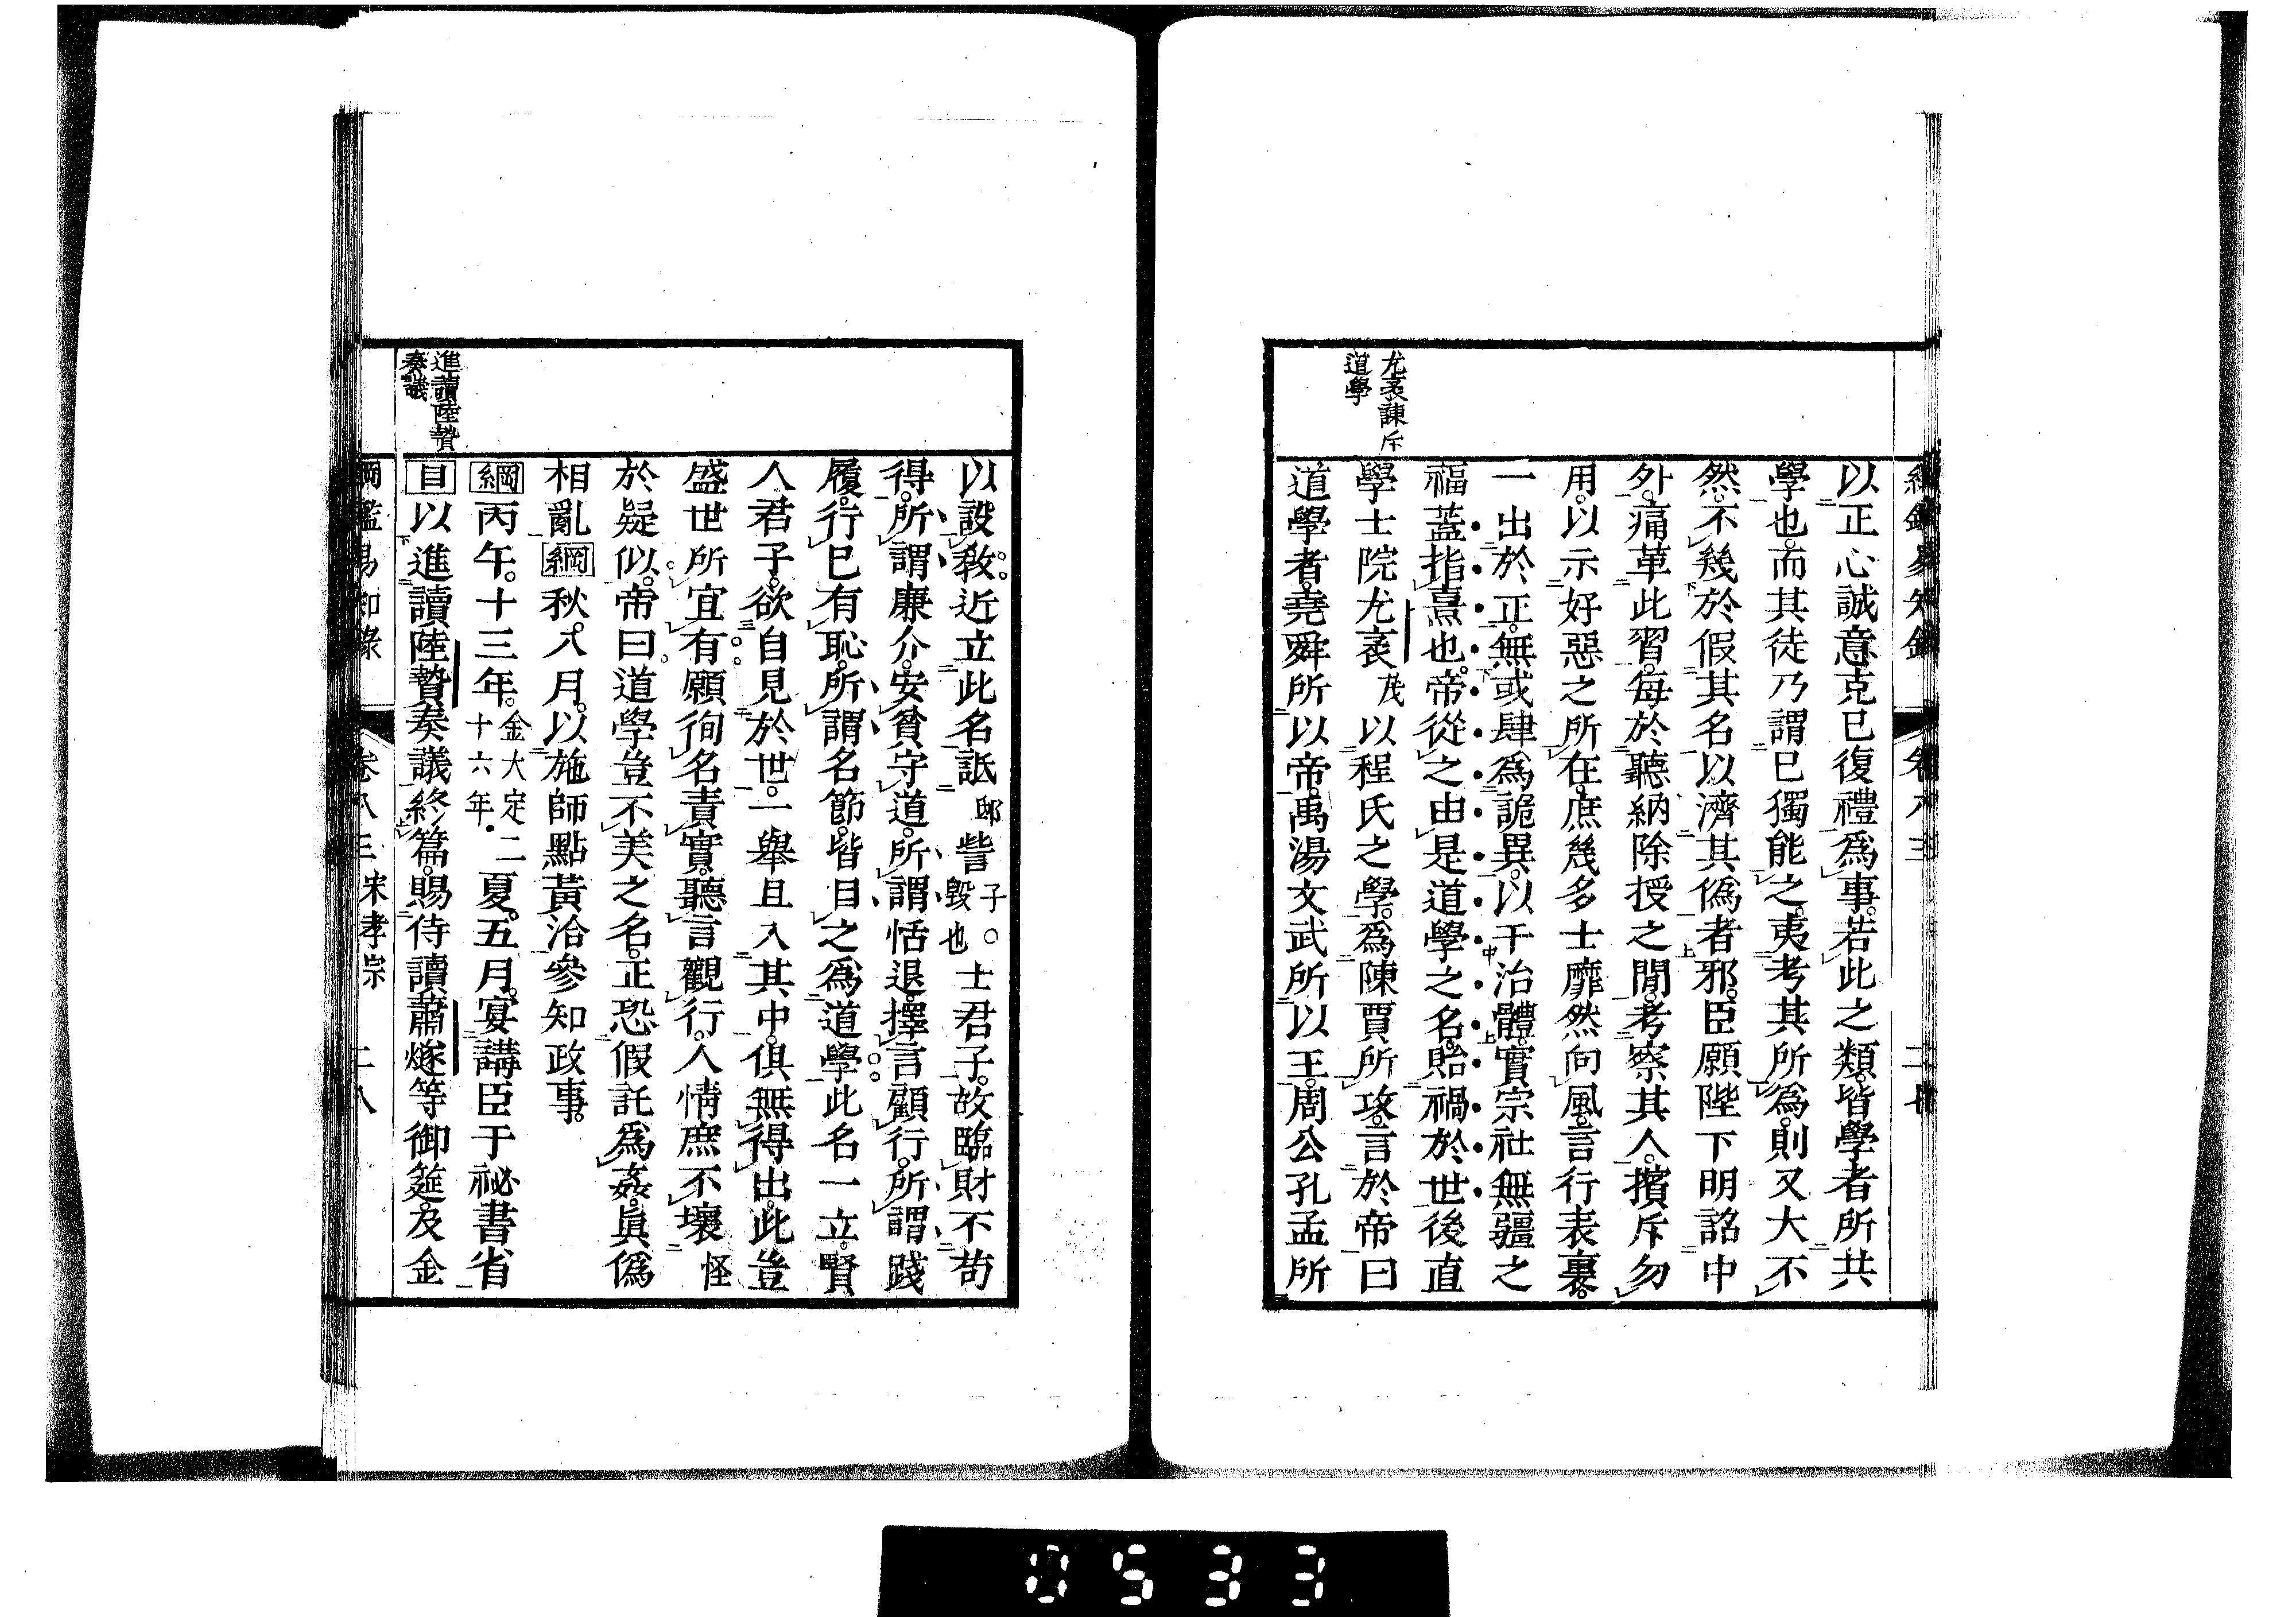 以正心誠意克已復禮爲事。若此之類。皆學者所共
學也。而其徒乃謂已獨能之。夷考其所爲。則又大不
然。不幾於假其名以濟其僞者邪。臣願陛下明詔中
外。痛革此習。每於聽納除授之間。考察其人。擯斥勿
用。以示好惡之所在。庶幾多士靡然向風。言行表裏。
一出於正。無或肆爲詭異。以干治體。實宗社無疆之
福。蓋指熹也。帝從之由是道學之名。貽禍於世後直
尤袤諫斥
道學
學士院尤袤茂以程氏之學。爲陳賈所攻。言於帝曰
道學者。堯舜所以帝。禹湯文武所以王。周公孔孟所
以設敎。近立此名詆邸訾子。毀也〇士君子。故臨財不苟
得。所謂廉介。安貧守道。所謂恬退。擇言顧行。所謂踐
履。行已有恥。所謂名節。皆目之爲道學此名一立。賢
人君子。欲自見於世。一舉且入其中。俱無得出。此豈
盛世所宜有願徇名責實。聽言觀行。人情庶不壞怪
於疑似。帝曰道學豈不美之名。正恐假託爲姦。眞僞
相亂綱秋。八月。以施師點黃洽參知政事。
綱丙午。十三年。金大定二十六年。夏。五月。宴講臣于祕書省
進讀陸贄
奏議
目以進讀陸贄奏議終篇。賜侍讀蕭燧等御筵。及金
綱鑑易知錄 卷八三 宋孝宗 二八
0533